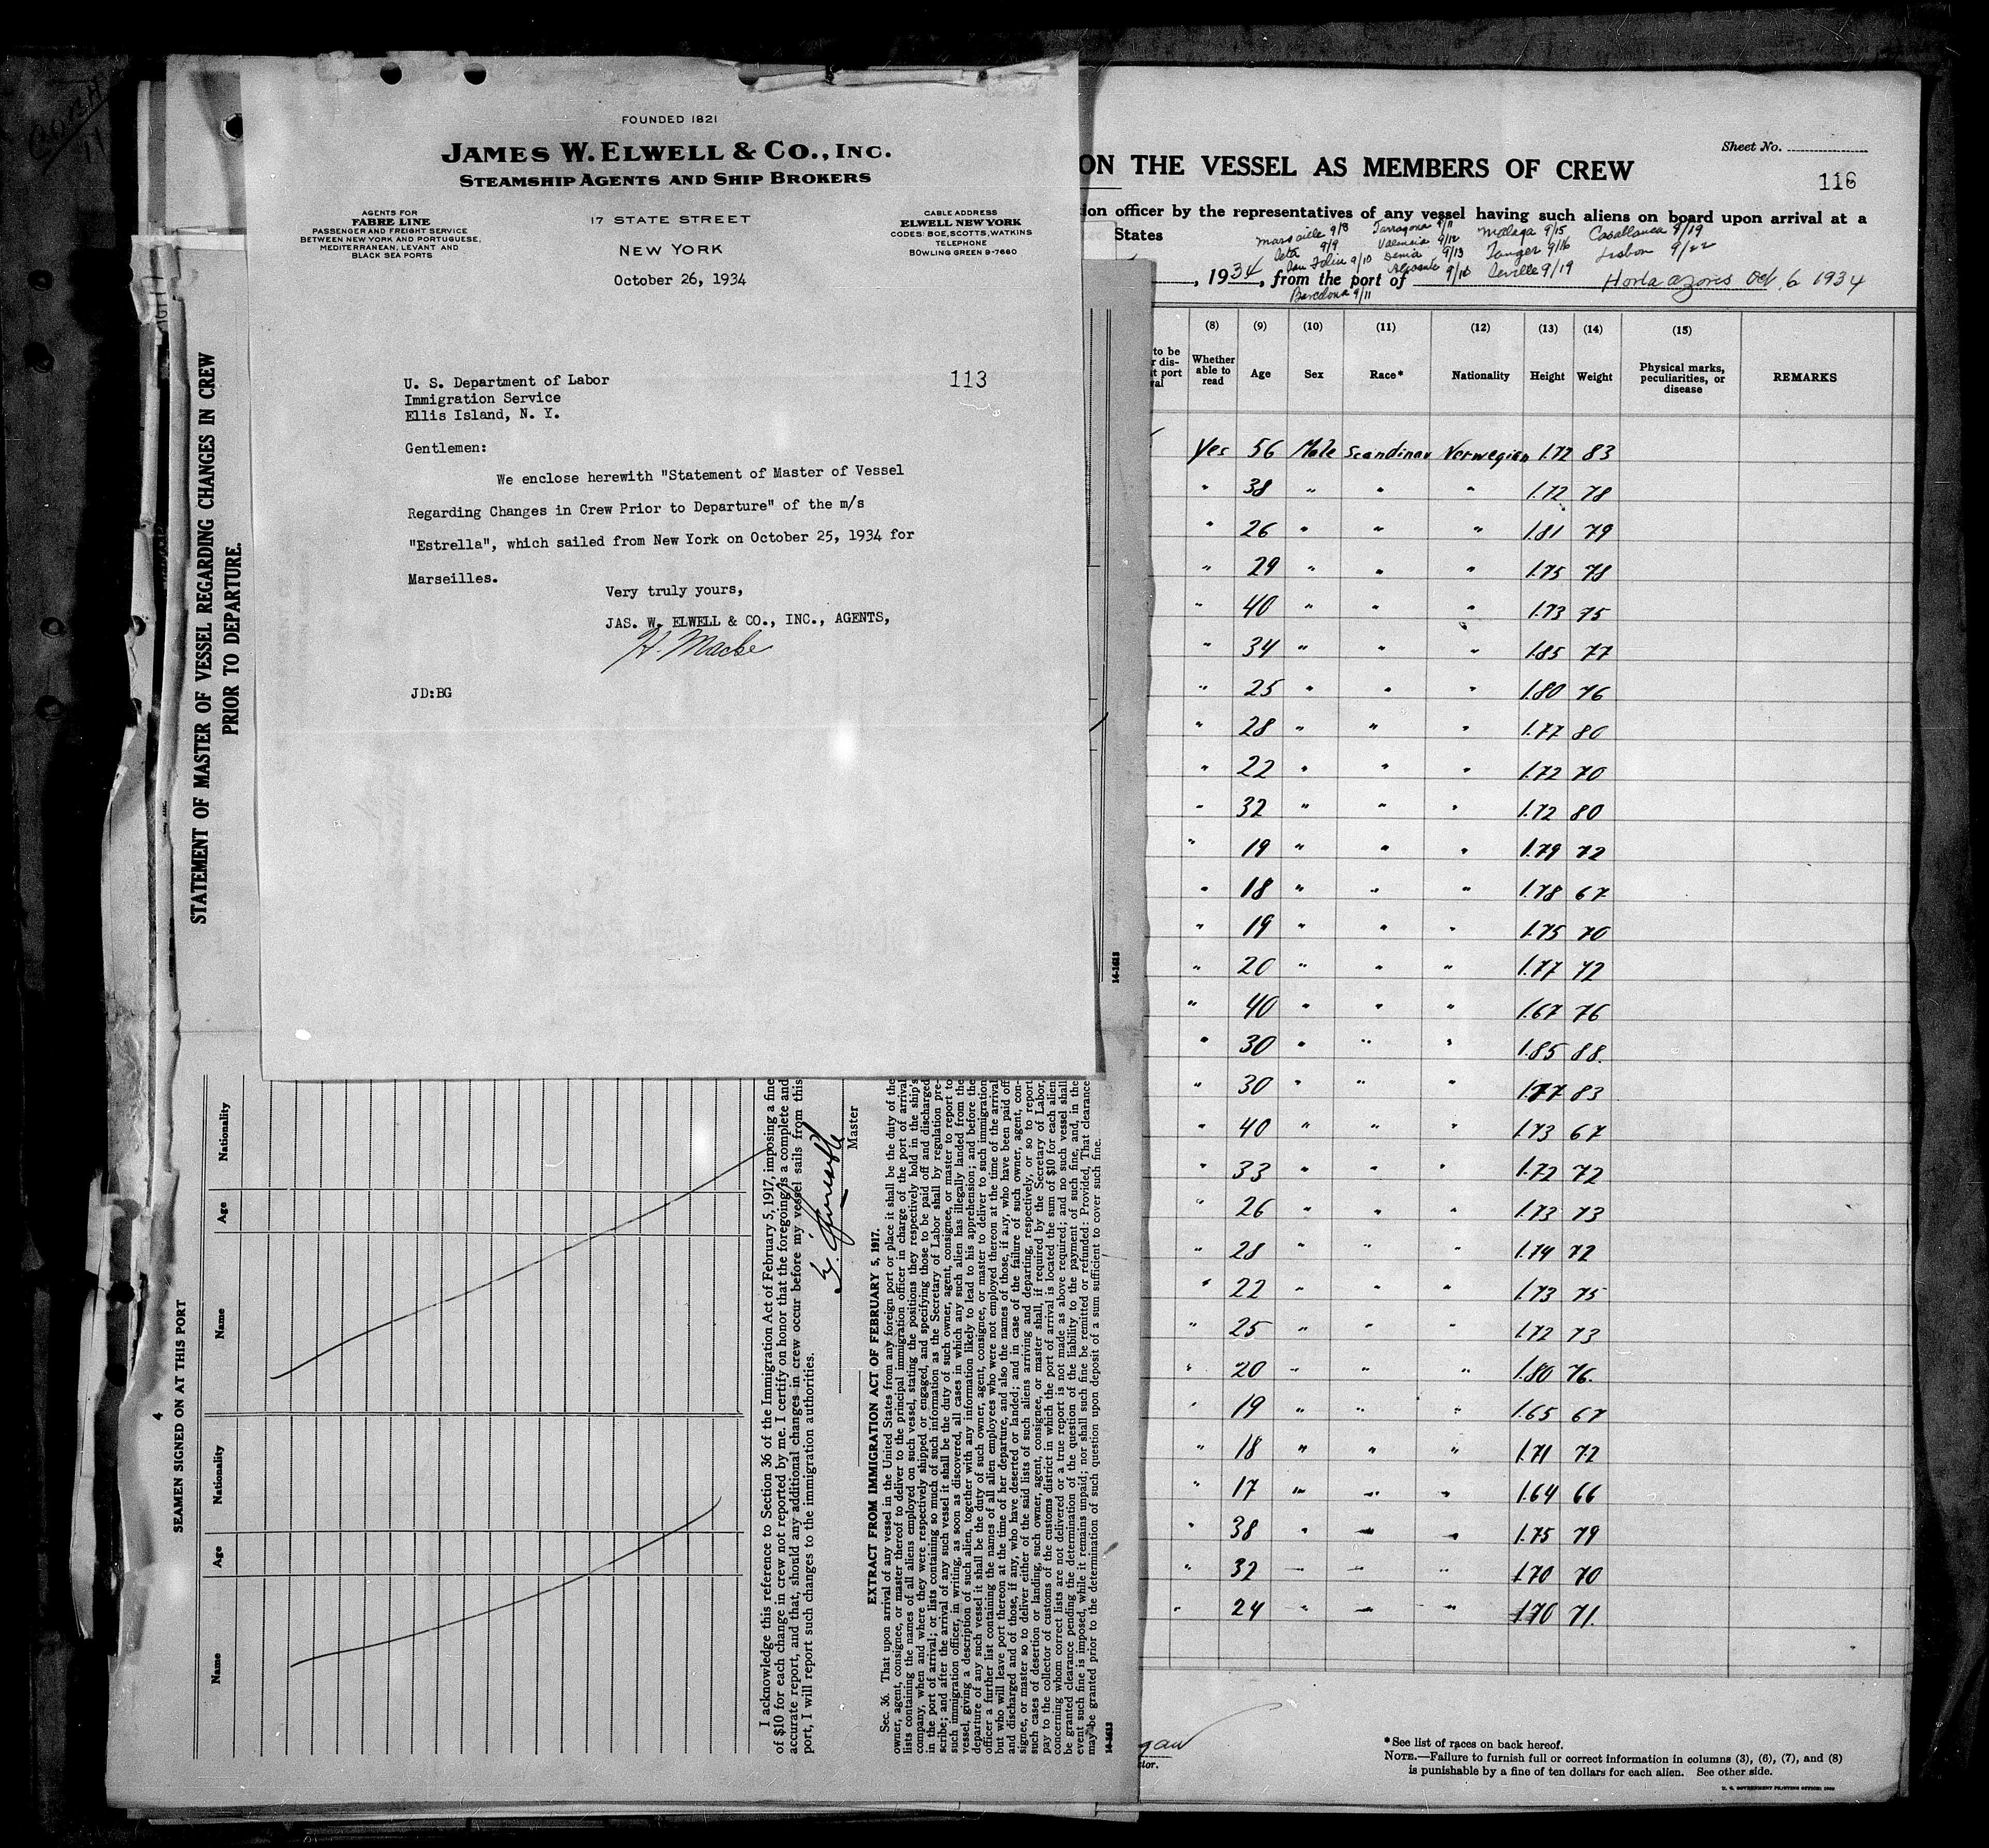 FOUNDED 1821
JAMES W. ELWELL & CO., INC.
STEAMSHIP AGENTS AND SHIP BROKERS
AGENTS FOR
FABRE LINE
PASSENGER AND FREIGHT SERVICE
BETWEEN NEW YORK AND PORTUGUESE,
MEDITERRANEAN, LEVANT AND
BLACK SEA PORTS
17 STATE STREET
NEW YORK
CABLE ADDRESS
ELWELL NEW YORK
CODES: BOE, SCOTTS, WATKINS
TELEPHONE
BOWLING GREEN 9-7660
October 26, 1934
U. S. Department of Labor
Immigration Service
Ellis Island, N. Y.
113
Gentlemen:
We enclose herewith "Statement of Master of Vessel
Regarding Changes in Crew Prior to Departure" of the m/s
"Estrella", which sailed from New York on October 25, 1934 for
Marseilles.
Very truly yours,
JAS. W. ELWELL & CO., INC., AGENTS,
H. Macke
JD:BG
STATEMENT OF MASTER OF VESSEL REGARDING CHANGES IN CREW
PRIOR TO DEPARTURE.
4
SEAMEN SIGNED ON AT THIS PORT
Name Age Nationality Name Age Nationality
I acknowledge this reference to Section 36 of the Immigration Act of February 5, 1917, imposing a fine
of $10 for each change in crew not reported by me. I certify on honor that the foregoing is a complete and
accurate report, and that, should any additional changes in crew occur before my vessel sails from this
port, I will report such changes to the immigration authorities.
Master
EXTRACT FROM IMMIGRATION ACT OF FEBRUARY 5, 1917.
Sec. 36. That upon arrival of any vessel in the United States from any foreign port or place it shall be the duty of the
owner, agent, consignee, or master thereof to deliver to the principal immigration officer in charge of the port of arrival
lists containing the names of all aliens employed on such vessel, stating the positions they respectively hold in the ship's
company, when and where they were respectively shipped or engaged, and specifying those to be paid off and discharged
in the port of arrival; or lists containing so much of such information as the Secretary of Labor shall by regulation pre-
scribe; and after the arrival of any such vessel it shall be the duty of such owner, agent, consignee, or master to report to
such immigration officer, in writing, as soon as discovered, all cases in which any such alien has illegally landed from the
vessel, giving a description of such alien, together with any information likely to lead to his apprehension; and before the
departure of any such vessel it shall be the duty of such owner, agent, consignee, or master to deliver to such immigration
officer a further list containing the names of all alien employees who were not employed thereon at the time of the arrival
but who will leave port thereon at the time of her departure, and also the names of those, if any, who have been paid off
and discharged and of those, if any, who have deserted or landed; and in case of the failure of such owner, agent, con-
signee, or master so to deliver either of the said lists of such aliens arriving and departing, respectively, or so to report
such cases of desertion or landing, such owner, agent, consignee, or master shall, if required by the Secretary of Labor,
pay to the collector of customs of the customs district in which the port of arrival is located the sum of $10 for each alien
concerning whom correct lists are not delivered or a true report is not made as above required; and no such vessel shall
be granted clearance pending the determination of the question of the liability to the payment of such fine, and, in the
event such fine is imposed, while it remains unpaid; nor shall such fine be remitted or refunded: Provided, That clearance
may be granted prior to the determination of such question upon deposit of a sum sufficient to cover such fine.
14-1613
14-1613
Sheet No.
ON THE VESSEL AS MEMBERS OF CREW
116
ion officer by the representatives of any vessel having such aliens on board upon arrival at a
States
Marseille 9/8 Tarragona 9/11 Malaga 9/15 Casablanca 9/19
9/9 Valencia 9/12 Tanger 9/16 Lisbon 9/22
San Feliu 9/10 Denia 9/13 Seville 9/19
Alicante 9/14
Barcelona 9/11
, 1934, from the port of Horta Azores Oct. 6 1934
to be
r dis-
t port
val
(8) (9) (10) (11) (12) (13) (14) (15)
Whether able to read Age Sex Race* Nationality Height Weight Physical marks, peculiarities, or disease REMARKS
Yes 56 Male Scandinav Norwegian 1.72 83
" 38 " " " 1.72 78
" 26 " " " 1.81 79
" 29 " " " 1.75 78
" 40 " " " 1.73 75
" 34 " " " 1.85 77
" 25 " " " 1.80 76
" 28 " " " 1.77 80
" 22 " " " 1.72 70
" 32 " " " 1.72 80
" 19 " " " 1.79 72
" 18 " " " 1.78 67
" 19 " " " 1.75 70
" 20 " " " 1.77 72
" 40 " " " 1.67 76
" 30 " " " 1.85 88.
" 30 " " " 1.77 83
" 40 " " " 1.73 67
" 33 " " " 1.72 72
" 26 " " " 1.73 73
" 28 " " " 1.74 72
" 22 " " " 1.73 75
" 25 " " " 1.72 73
" 20 " " " 1.80 76.
" 19 " " " 1.65 67
" 18 " " " 1.71 72
" 17 " " " 1.64 66
" 38 " " " 1.75 79
" 32 " " " 1.70 70
" 24 " " " 1.70 71.
*See list of races on back hereof.
NOTE.—Failure to furnish full or correct information in columns (3), (6), (7), and (8)
is punishable by a fine of ten dollars for each alien. See other side.